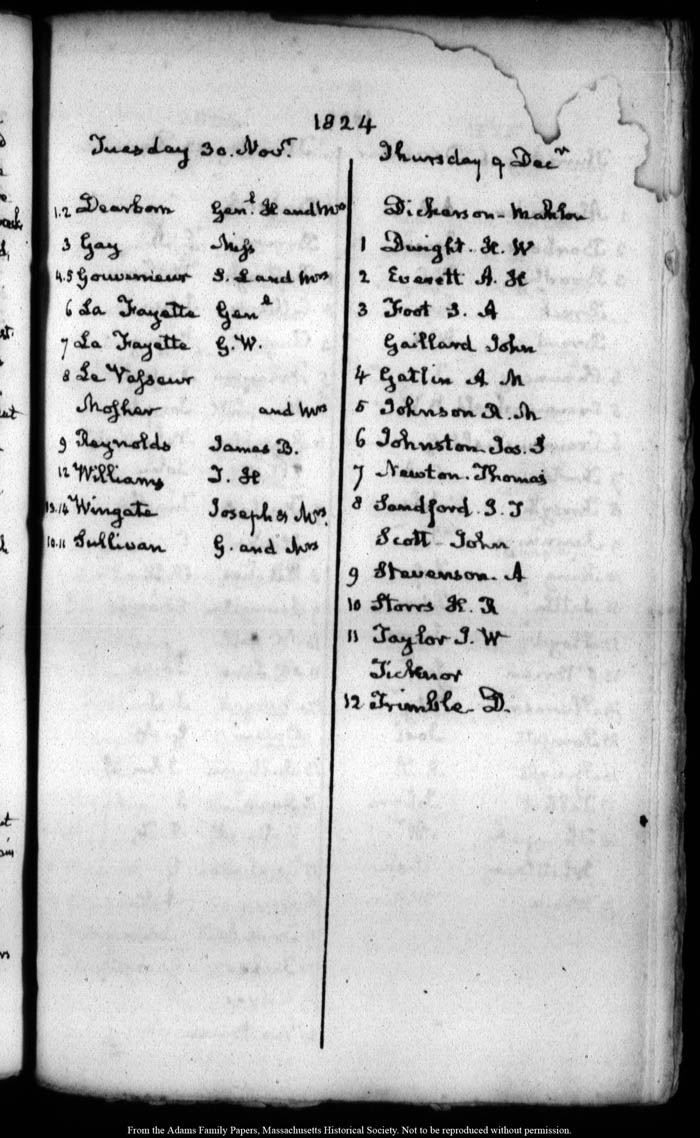 1824
Tuesday 30. Novr.
1.2 Dearborn Genl. H and Mrs
3 Gay Miss
4.5 Gouverneur S. L and Mrs
6 La Fayette Genl
7 La Fayette G. W.
8 Le Vasseur
Mosher and Mrs
9 Reynolds James B.
12 Williams T. H
13.14 Wingate Joseph & Mrs.
10.11 Sullivan G. and Mrs
Thursday 9 Decr
Dickerson - Mahlon
1 Dwight. H. W
2 Everett A. H
3 Foot S. A
Gaillard John
4 Gatlin A. M
5 Johnson R. M
6 Johnston. Jos. S
7 Newton. Thomas
8 Sandford. J. T
Scott - John
9 Stevenson. A
10 Storrs H. R
11 Taylor J. W
Ticknor
12 Trimble. D.
From the Adams Family Papers, Massachusetts Historical Society. Not to be reproduced without permission.